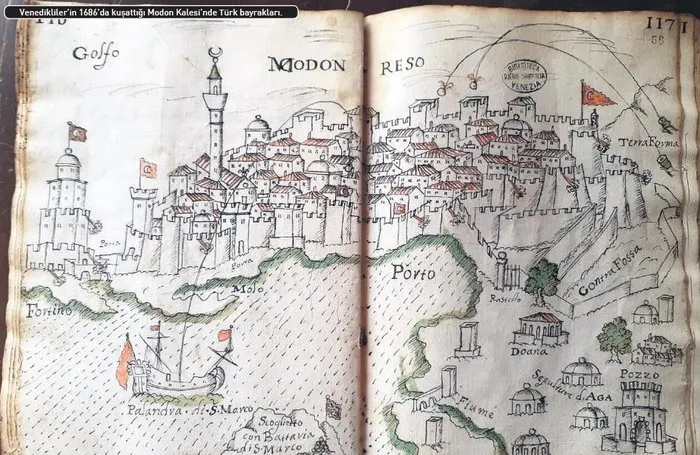 Venedikliler'in 1686'da kuşattığı Modon Kalesi'nde Türk bayrakları.
118
117
58
Golfo
MODON RESO
VENEZIA
Terra Ferma
Porta
Porta
Molo
Porto
Rastello
Contra Fossa
Fortino
Doana
Pozzo
Sepolture d. AGA
Palandra di S. Marco
Fiume
Scoglietto
con Battaria
di S. Marco